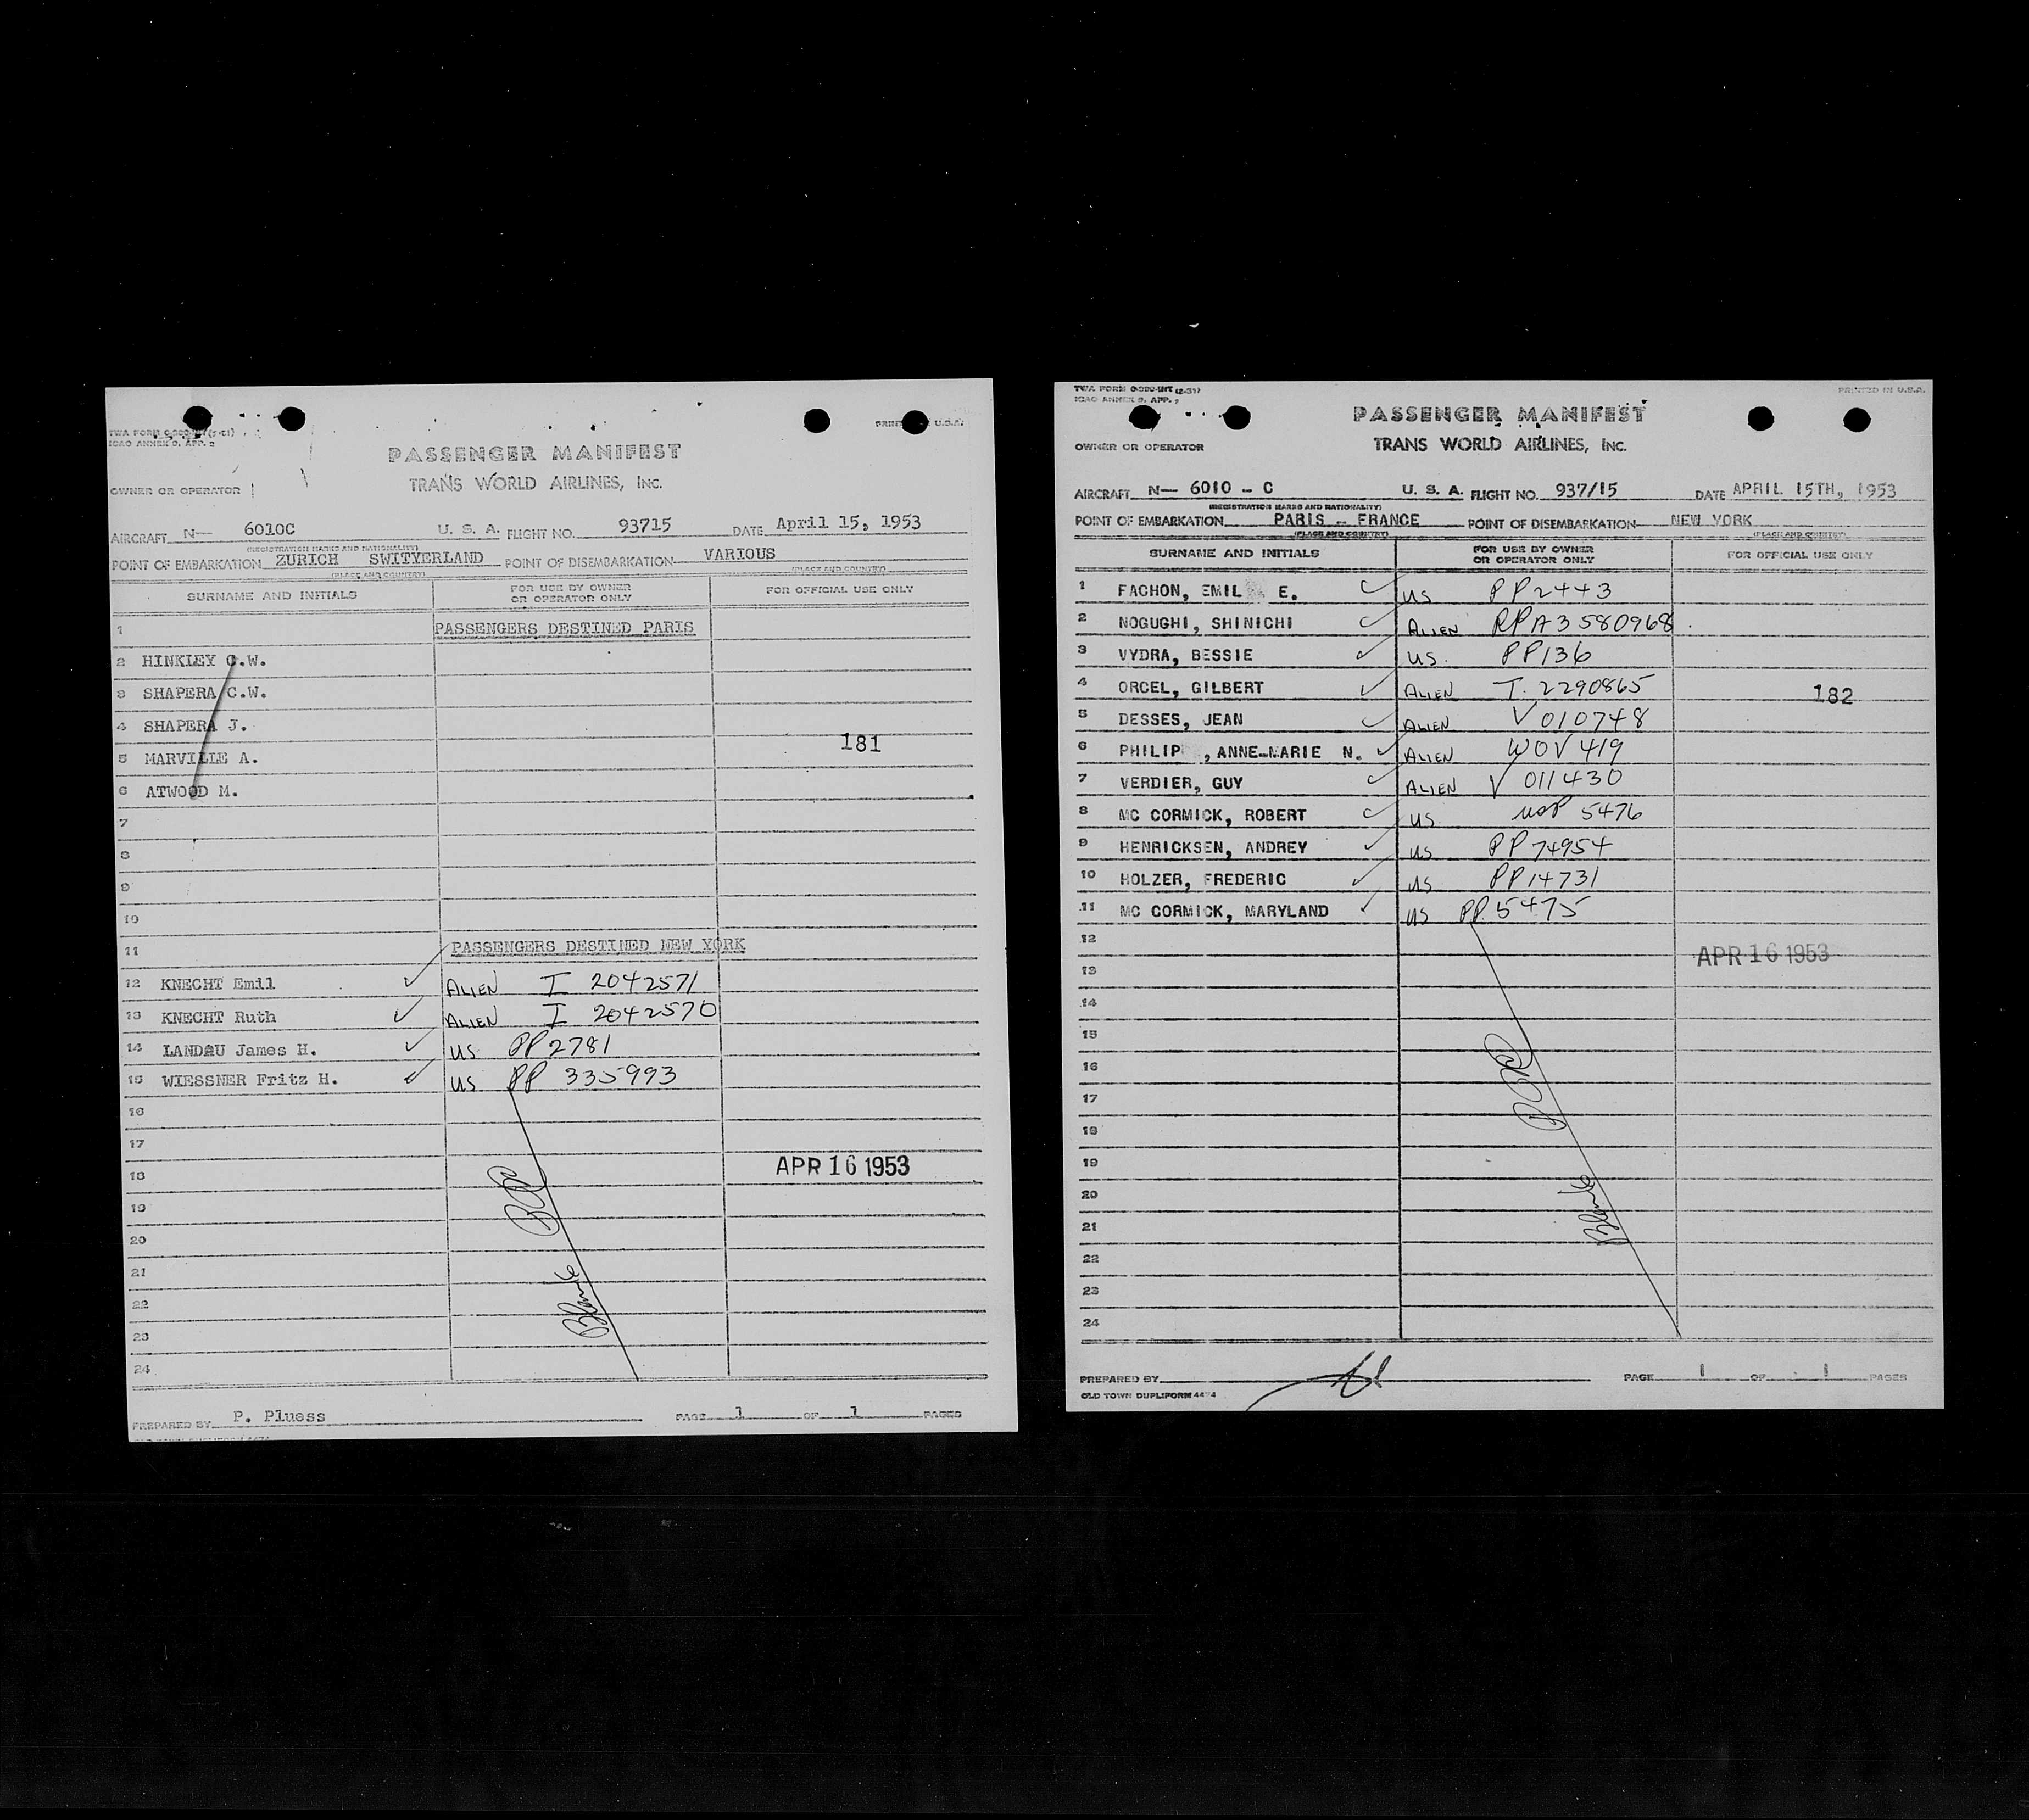 TWA FORM
ICAO ANNEX 9, APP. 2
U.S.A.
PASSENGER MANIFEST
OWNER OR OPERATOR
TRANS WORLD AIRLINES, INC.
AIRCRAFT N— 6010C U. S. A. FLIGHT NO. 93715 DATE April 15, 1953
(REGISTRATION MARKS AND NATIONALITY)
POINT OF EMBARKATION ZURICH SWITYERLAND POINT OF DISEMBARKATION VARIOUS
(PLACE AND COUNTRY) (PLACE AND COUNTRY)
SURNAME AND INITIALS FOR USE BY OWNER OR OPERATOR ONLY FOR OFFICIAL USE ONLY
1 PASSENGERS DESTINED PARIS
2 HINKLEY C.W.
3 SHAPERA C.W.
4 SHAPERA J.
181
5 MARVILLE A.
6 ATWOOD M.
7
8
9
10
11 PASSENGERS DESTINED NEW YORK
12 KNECHT Emil ✓ ALIEN I 2042571
13 KNECHT Ruth ✓ ALIEN I 2042570
14 LANDAU James H. ✓ US PP 2781
15 WIESSNER Fritz H. ✓ US PP 335993
16
17
18 APR 16 1953
19
20
21
22
Blank
23
24
PREPARED BY P. Pluess PAGE 1 OF 1 PAGES
TWA FORM
ICAO ANNEX 9, APP. 2
PRINTED IN U.S.A.
PASSENGER MANIFEST
OWNER OR OPERATOR
TRANS WORLD AIRLINES, INC.
AIRCRAFT N— 6010 - C U. S. A. FLIGHT NO. 937/15 DATE APRIL 15TH, 1953
(REGISTRATION MARKS AND NATIONALITY)
POINT OF EMBARKATION PARIS - FRANCE POINT OF DISEMBARKATION NEW YORK
(PLACE AND COUNTRY) (PLACE AND COUNTRY)
SURNAME AND INITIALS FOR USE BY OWNER OR OPERATOR ONLY FOR OFFICIAL USE ONLY
1 FACHON, EMIL E. ✓ US PP 2443
2 NOGUGHI, SHINICHI ✓ ALIEN RPA3580968
3 VYDRA, BESSIE ✓ US. PP136
4 ORCEL, GILBERT ✓ ALIEN I. 2290865
182
5 DESSES, JEAN ✓ ALIEN V 010748
6 PHILIP , ANNE-MARIE N. ✓ ALIEN WOV 419
7 VERDIER, GUY ✓ ALIEN V 011430
8 MC CORMICK, ROBERT ✓ US USP 5476
9 HENRICKSEN, ANDREY ✓ US PP 74954
10 HOLZER, FREDERIC ✓ US PP14731
11 MC CORMICK, MARYLAND ✓ US PP 5475
12
APR 16 1953
13
14
15
16
17
19
19
20
Blank
21
22
23
24
PREPARED BY PAGE 1 OF 1 PAGES
OLD TOWN DUPLIFORM 4474